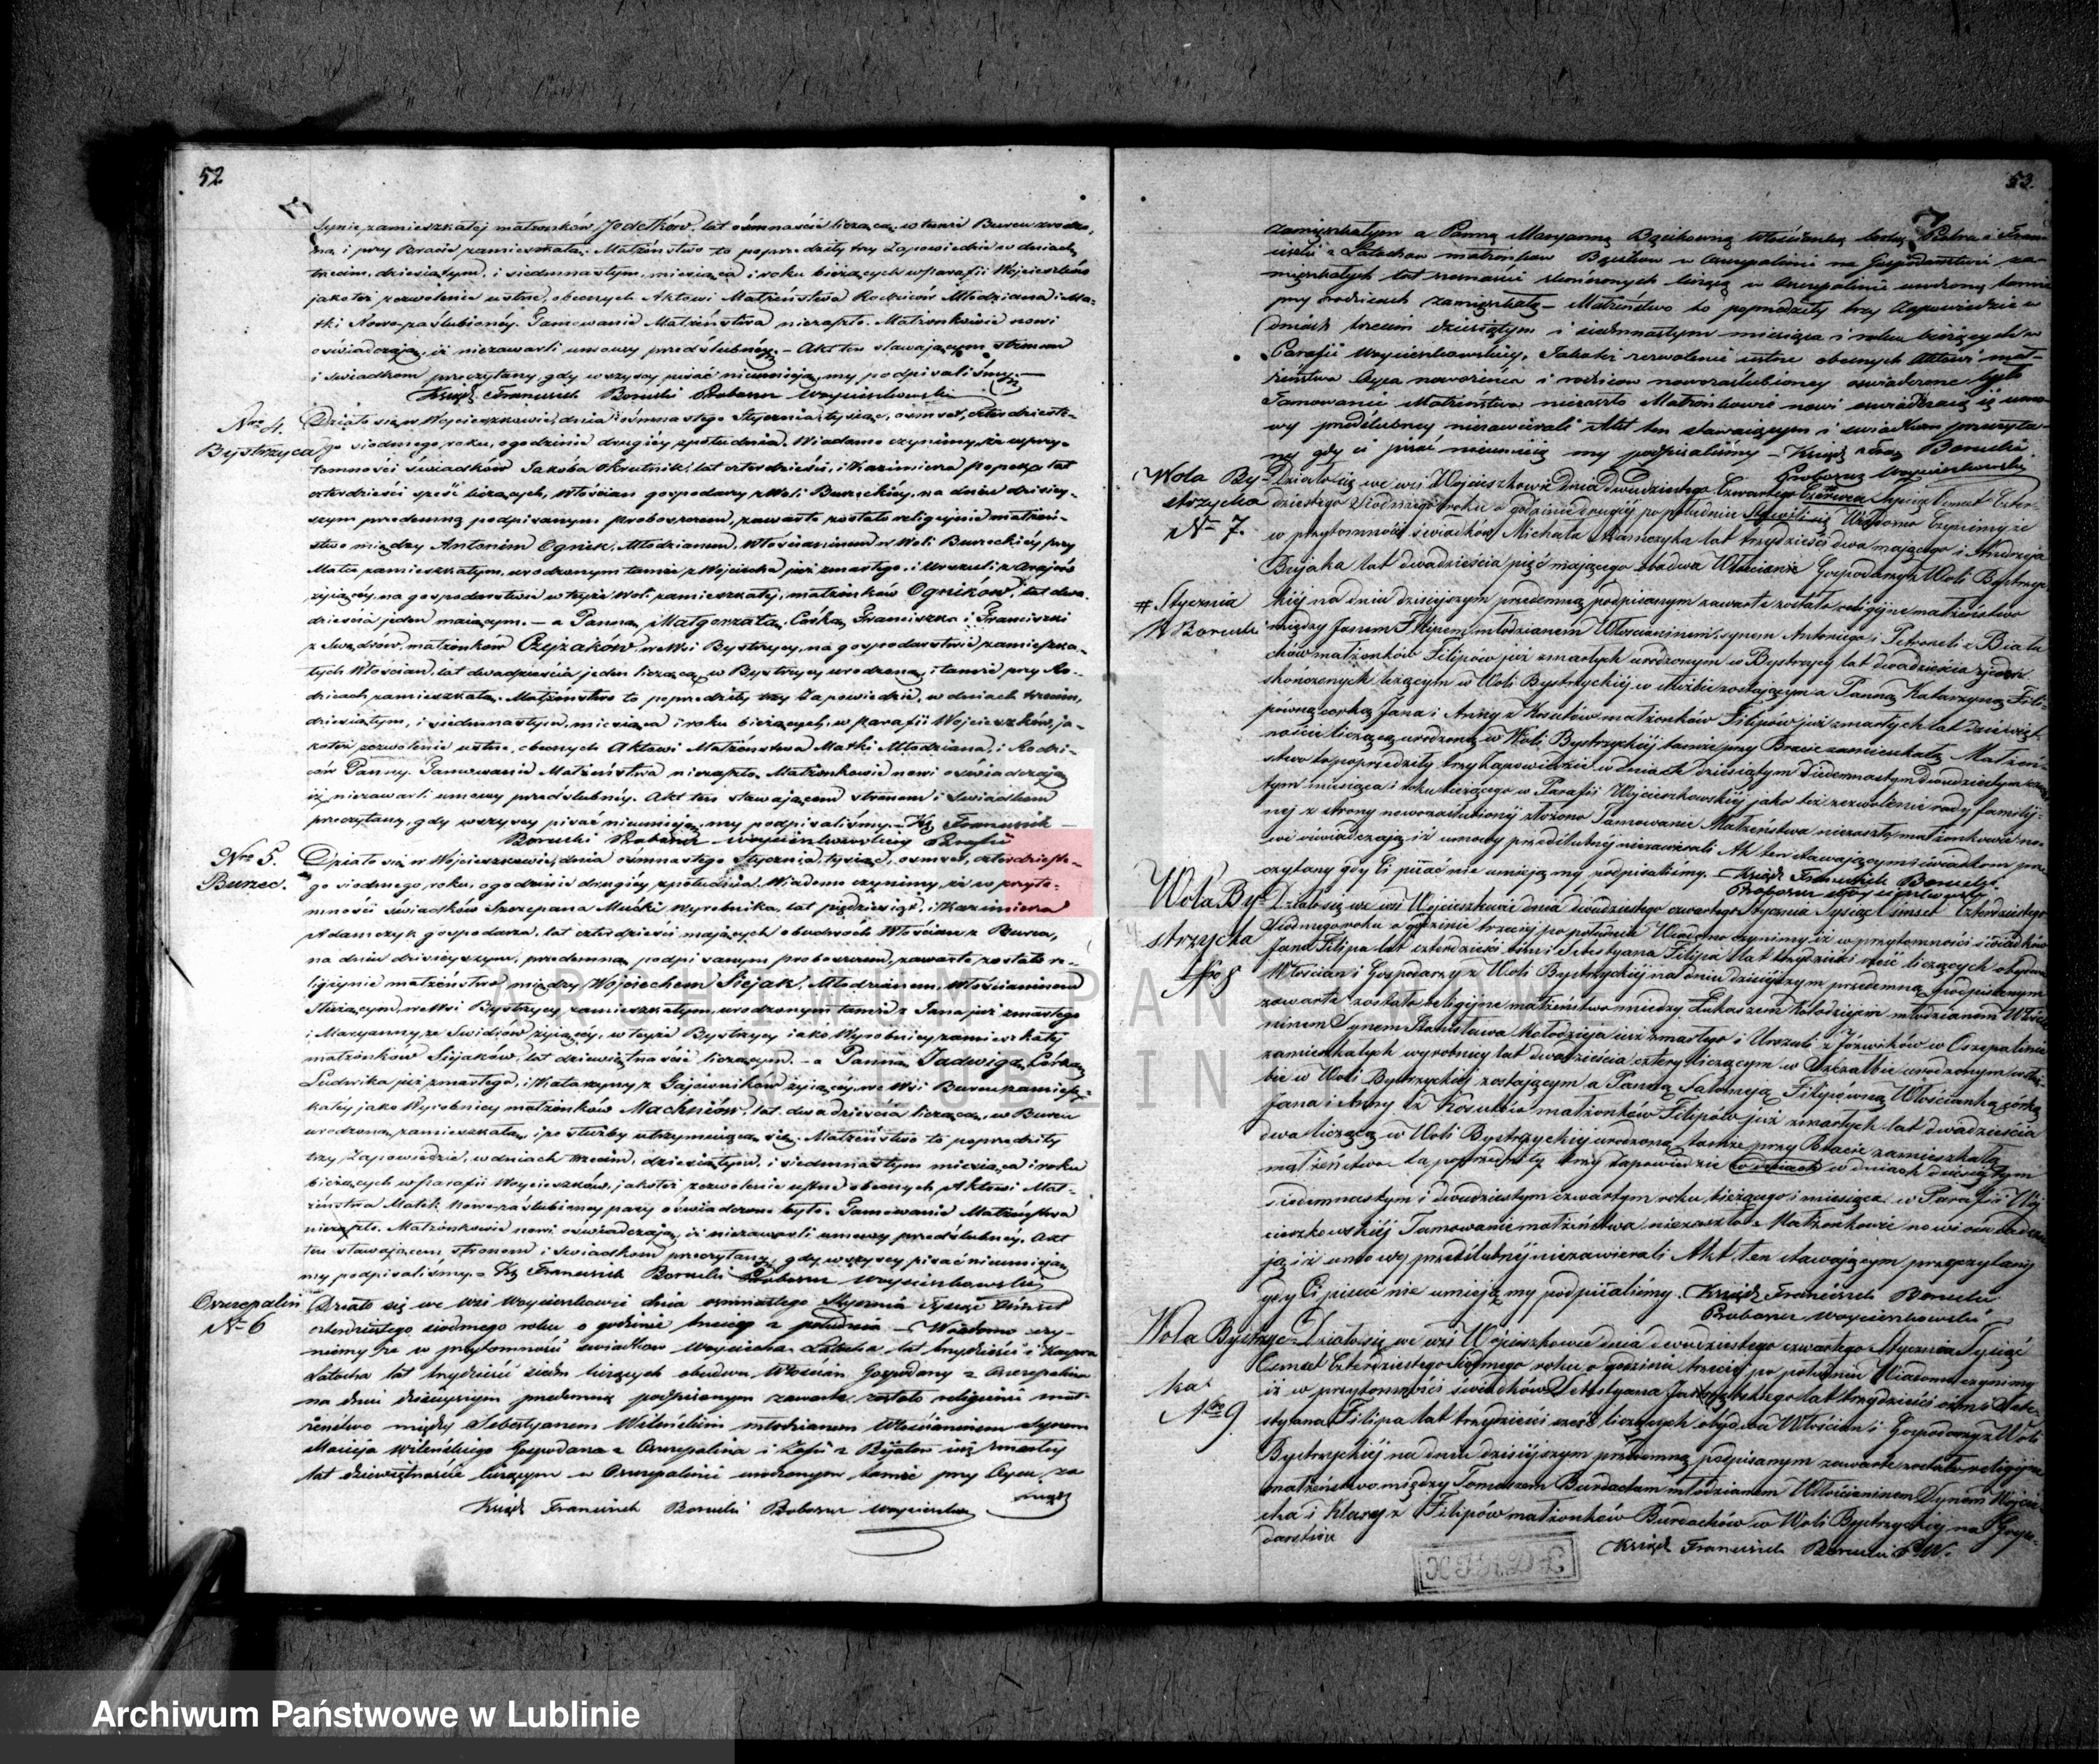 52
Synie, zamieszkałej małżonków Jodełków, lat ośmnaście liczącą, w temże Burcu urodzo-
ną i przy Bracie zamieszkałą. Małżeństwo to poprzedziły trzy Zapowiedzie w dniach
trzecim, dziesiątym, i siedmnastym, miesiąca i roku bieżących w parafii Wojcieszków
jakoteż zezwolenie ustne, obecnych Aktowi Małżeństwa Rodziców Młodziana i Ma-
tki Nowo-zaślubionéy. Tamowanie Małżeństwa niezaszło. Małżonkowie nowi
oświadczają, iż niezawarli umowy przedślubnéy. – Akt ten stawającym stronom
i świadkom przeczytany, gdy wszyscy pisać nieumieją, my podpisaliśmy. –
Ksiądz Franciszek Borucki Proboszcz Woycieszkowski
Nro 4.
Bystrzyca
Działo się w Wojcieszkowie, dnia ośmnastego Stycznia, tysiąc, ośmset, czterdzieste-
go siodmego, roku, o godzinie drugiéy z południa. Wiadomo czynimy, że w przy-
tomności świadków Jakóba Okrutnik, lat czterdzieści, i Kazimierza lat
czterdzieści sześć liczących, Włościan gospodarzy z Woli Burzeckiéy, na dniu dzisiey-
szym przedemną podpisanym proboszczem, zawarte zostało religijnie małżeń-
stwo między Antonim Ognik, Młodzianem, Włościaninem w Woli Burzeckiéy przy
Matce zamieszkałym, urodzonym tamże z Wojciecha już zmarłego, i Urszuli z
żyiącéy, na gospodarstwie w teyże Woli zamieszkałéy, małżonków Ogników, lat dwa-
dzieścia jeden maiącym. – a Panną Małgorzatą, Córką Franciszka i Franciszki
z małżonków Czyżaków, we Wsi Bystrzycy, na gospodarstwie zamieszka-
łych Włościan, lat dwadzieścia jeden liczącą, w Bystrzycy urodzoną, i tamże przy Ro-
dzicach zamieszkałą. Małżeństwo to poprzedziły trzy Zapowiedzie, w dniach trzecim,
dziesiątym, i siedmnastym, miesiąca i roku bieżących, w parafii Wojcieszków, ja-
koteż zezwolenie ustne, obecnych Aktowi Małżeństwa Matki Młodziana, i Rodzi-
ców Panny. Tamowanie Małżeństwa niezaszło. Małżonkowie nowi oświadczają
iż niezawarli umowy przedślubnéy. Akt ten stawającym stronom i świadkom
przeczytany, gdy wszyscy pisać nieumieją, my podpisaliśmy. – Xg Franciszek
Borucki Proboszcz Woycieszkowskiey Parafii
Nro 5.
Burzec.
Działo się w Wojcieszkowie, dnia ośmnastego Stycznia, tysiąc, ośmset, czterdzieste-
go siodmego, roku, o godzinie drugiéy z południa. Wiadomo czynimy, że w przyto-
mności świadków Szczepana Mućki Wyrobnika, lat pięćdziesiąt, i Kazimierza
Adamczyk gospodarza, lat czterdzieści mających, obudwóch Włościan z Burca,
na dniu dzisieyszym, przedemną podpisanym proboszczem, zawarte zostało re-
ligijnie małżeństwo, między Wojciechem Siejak, Młodzianem, Włościaninem
służącym, we Wsi Bystrzycy zamieszkałym, urodzonym tamże z Jana już zmarłego
i Maryanny, ze Świdrów żyiącéy, w teyże Bystrzycy iako Wyrobnicy zamieszkałéy
małżonków Siejaków, lat dziewiętnaście liczącym. – a Panną Jadwigą, Córką
Ludwika już zmarłego, i Katarzyny z Gajowników żyiącéy, we Wsi Burcu zamiesz-
kałéy jako Wyrobnicy małżonków Machniów, lat dwadzieścia liczącą, w Burcu
urodzoną, zamieszkałą, i ze służby utrzymuiącą się. Małżeństwo to poprzedziły
trzy Zapowiedzie, w dniach trzecim, dziesiątym, i siedmnastym miesiąca i roku
bieżących w parafii Woycieszków, jakoteż zezwolenie ustne obecnych Aktowi Mał-
żeństwa Matek Nowo-zaślubionéy pary oświadczone było. Tamowanie Małżeństwa
niezaszło. Małżonkowie nowi oświadczają, iż niezawarli umowy przedślubnéy. Akt
ten stawającym stronom i świadkom przeczytany, gdy wszyscy pisać nieumieją,
my podpisaliśmy. – Xg Franciszek Borucki Proboszcz Woycieszkowski
Oszczepalin
N 6
Działo się we wsi Woycieszkowie dnia osmnastego Stycznia Tysiąc Osmset
czterdziestego siodmego roku o godzinie trzeciey z południa – Wiadomo czy-
niemy że w przytomności świadkow Woyciecha Latocha lat trzydzieści i Kaspra
Latocha lat trzydzieści siedm liczących obudwu Włoscian Gospodarzy z Oszczepalina
na dniu dzisieyszym przedemną podpisanym zawarte zostało religijnie mał-
żeństwo między Sebestyanem Wileńskim młodzianem Włościaninem synem
Macieja Wileńskiego Gospodarza z Oszczepalina i Zofii z Byialow iuż zmarłey
lat dziewiętnaście liczącym w Oszczepalinie urodzonym tamże przy Oycu za
Ksiądz Franciszek Borucki Proboszcz Woycieszkowski
53.
7
zamieszkałym a Panną Maryanną Bącikowną Włościanką corką Piotra i Fran-
ciszki z Latochow małżonkow Bącikow w Oszczepalinie na Gospodarstwie za-
mieszkałych lat szesnaście skończonych liczącą w Oszczepalinie urodzoną tamże
przy rodzicach zamieszkałą – Małżeństwo to poprzedziły trzy Zapowiedzie w
dniach trzecim dziesiątym i siedmnastym miesiąca i roku bieżących w
Parafii Woycieszkowskiey, Jakoteż zezwolenie ustne obecnych Aktowi mał-
żeństwa Oyca nowożeńca i rodzicow nowozaślubioney oswiadczone było
Tamowanie Małżenstwa niezaszło Małżonkowie nowi oswiadczaią iż umo-
wy przedślubney niezawierali Akt ten stawaiącym i swiadkom przeczyta-
ny gdy ci pisać nieumieią my podpisaliśmy – Ksiądz Fran: Borucki
Proboszcz Woycieszkowski
Wola By-
strzycka
N 7.
# Stycznia
X Borucki
Działo się we wsi Wojcieszkowie dnia dwudziestego Czwartego Czerwca Tysiąc Osmset Czter-
dziestego Siodmego roku o godzinie drugiéj po południu Stawili się Wiadomo Czyniemy że
w przytomności świadków Michała Adamczyka lat trzydzieści dwa mającego i Andrzeja
Bujaka lat dwadzieścia pięć mającego obadwa Włościanie Gospodarzy z Woli Bystrzyc-
kiéj na dniu dzisiejszym przedemną podpisanym zawarte zostało religijne małżeństwo
między Janem Filipem młodzianem Włościaninem, synem Antoniego i Petroneli z Biała-
chów małżonków Filipów już zmarłych urodzonym w Bystrzycy lat dwadzieścia jeden
skończonych liczącym w Woli Bystrzyckiéj w służbie zostającym a Panną Katarzyną Fili-
pówną corką Jana i Anny z Kosutów małżonków Filipów już zmarłych lat dziewięt-
naście liczącą urodzoną w Woli Bystrzyckiéj tamże przy Bracie zamieszkałą Małżeń-
stwo to poprzedziły trzy zapowiedzie w dniach dziesiątym Siedemnastym dwudziestym czwar-
tym miesiąca i roku bieżącego w Parafii Wojcieszkowskiéj jako też zezwolenie rady familij-
néj z strony nowozaślubionéj złożono Tamowanie Małżeństwa niezaszło małżonkowie no-
wi oświadczają iż umowy przedślubnéj niezawierali Akt ten stawającym i świadkom prze-
czytany gdy Ci pisać nie umieją my podpisaliśmy. – Ksiądz Franciszek Borucki
Proboszcz Woycieszkowski
Wola By-
strzycka
Nro 8
Działo się we wsi Wojcieszkowie dnia dwudziestego czwartego Stycznia Tysiąc Ośmset Czterdziestego
Siodmego roku o godzinie trzeciéj po południu Wiadomo czynimy iż w przytomności świadków
Jana Filipa lat czterdzieści ośm i Sebestyana Filipa lat trzydzieści sześć liczących obydwu
Włościan i Gospodarzy z Woli Bystrzyckiéj na dniu dzisiejszym przedemną podpisanym
zawarte zostało religijne małżeństwo między Łukaszem Kołodziejem młodzianem Włościa-
ninem Synem Stanisława Kołodzieja już zmarłego i Urszuli z Józwików w Oszczepalinie
zamieszkałych wyrobnicy lat dwadzieścia cztery liczącym w Szczałbie urodzonym w służ-
bie w Woli Bystrzyckiéj zostającym a Panną Salomeją Filipówną Włościanką córką
Jana i Anny z Kosutów małżonków Filipów już zmarłych lat dwadzieścia
dwa liczącą w Woli Bystrzyckiéj urodzoną tamże przy Bracie zamieszkałą
małżeństwo ta poprzedziły trzy zapowiedzie w dniach w dniach dziesiątym
siedemnastym i dwudziestym czwartym roku bieżącego i miesiąca w Parafii Woj-
cieszkowskiéj Tamowanie małżeństwa niezaszło Małżonkowie nowi oświadcza-
ją iż umowy przedślubnéj niezawierali Akt ten stawającym przeczytany
gdy Ci pisać nie umieją my podpisaliśmy. Ksiądz Franciszek Borucki
Proboszcz Woycieszkowski
Wola Bystrzyc-
ka
Nro 9
Działo się we wsi Wojcieszkowie dnia dwudziestego czwartego Stycznia Tysiąc
Osmset Czterdziestego Siodmego roku o godzinie trzeciéj po południu Wiadomo czynimy
iż w przytomności świadków Sebestyana lat trzydzieści ośm i Sebe-
styana Filipa lat trzydzieści sześć liczących obydwu Włościan i Gospodarzy z Woli
Bystrzyckiéj na dniu dzisiejszym przedemną podpisanym zawarte zostało religijne
małżeństwo między Tomaszem Burdachem młodzianem Włościaninem Synem Wojcie-
cha i Klary z Filipów małżonków Burdachów w Woli Bystrzyckiéj na Gospo-
darstwie
Ksiądz Franciszek Borucki P.W.
ARCHIWUM PAŃSTWOWE
W LUBLINIE
Archiwum Państwowe w Lublinie